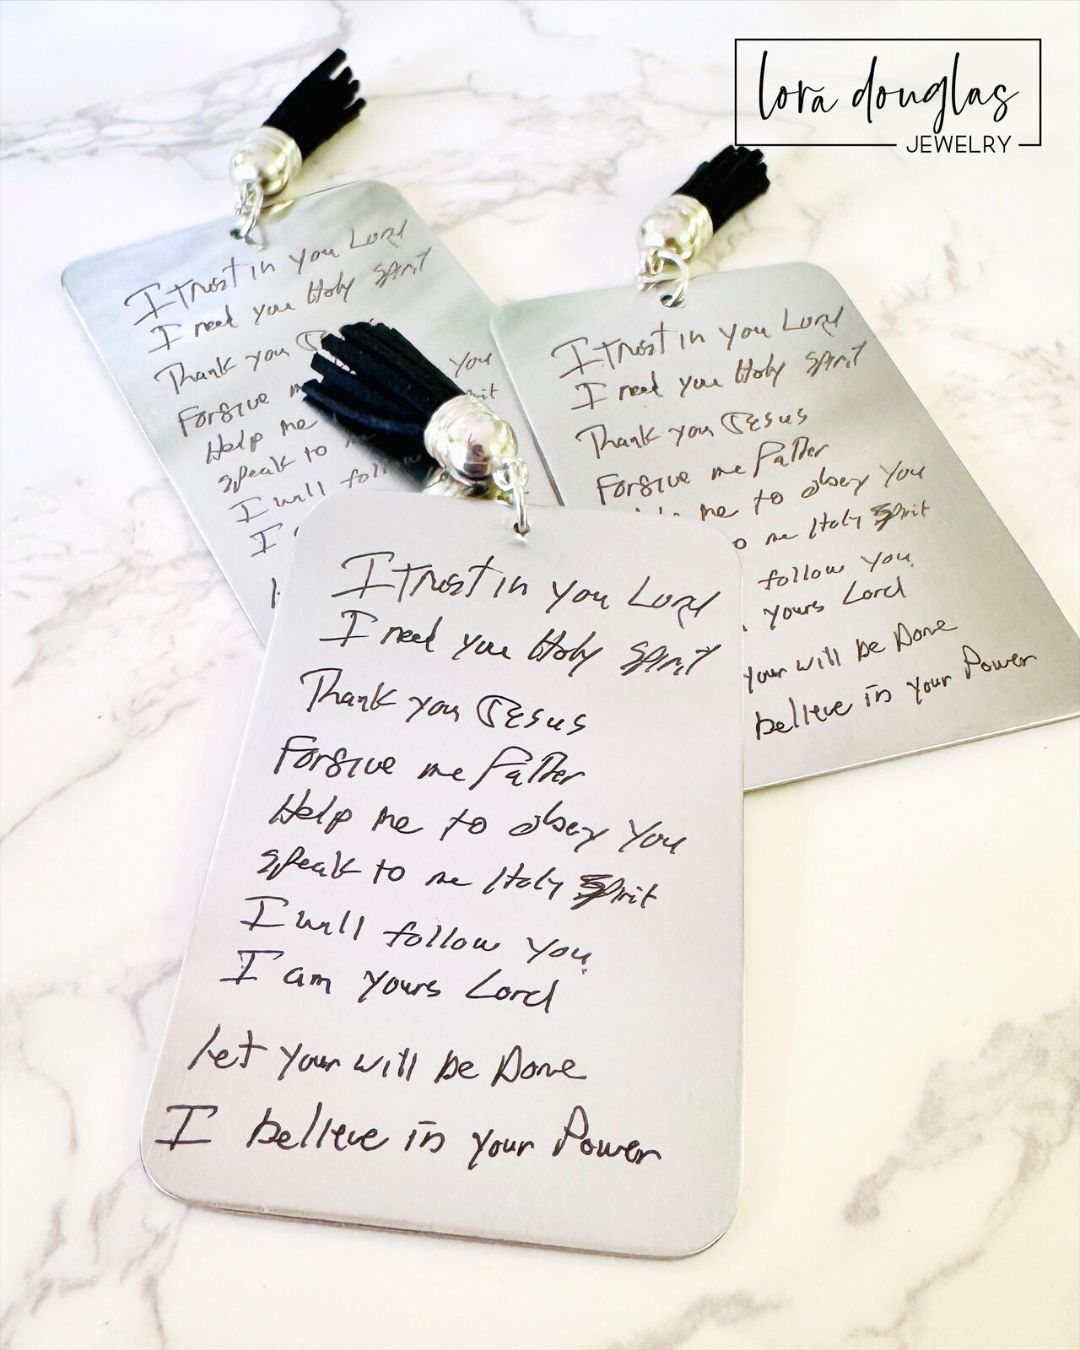 lora douglas
JEWELRY
I trust in you Lord
I need you Holy Spirit
Thank you
you
Forgive
Help me
speak to
I will follow
I
I trust in you Lord
I need you Holy Spirit
Thank you Jesus
Forgive me Father
me to obey You
me Holy Spirit
follow You
yours Lord
your will be Done
believe in your Power
I trust in you Lord
I need you Holy Spirit
Thank you Jesus
Forgive me Father
Help me to obey You
speak to me Holy Spirit
I will follow You
I am yours Lord
let your will be Done
I believe in your Power